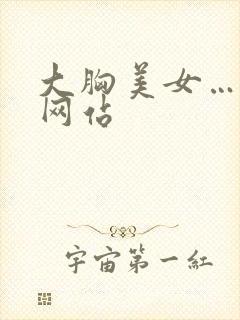 大胸美女…
网站
宇宙第一红